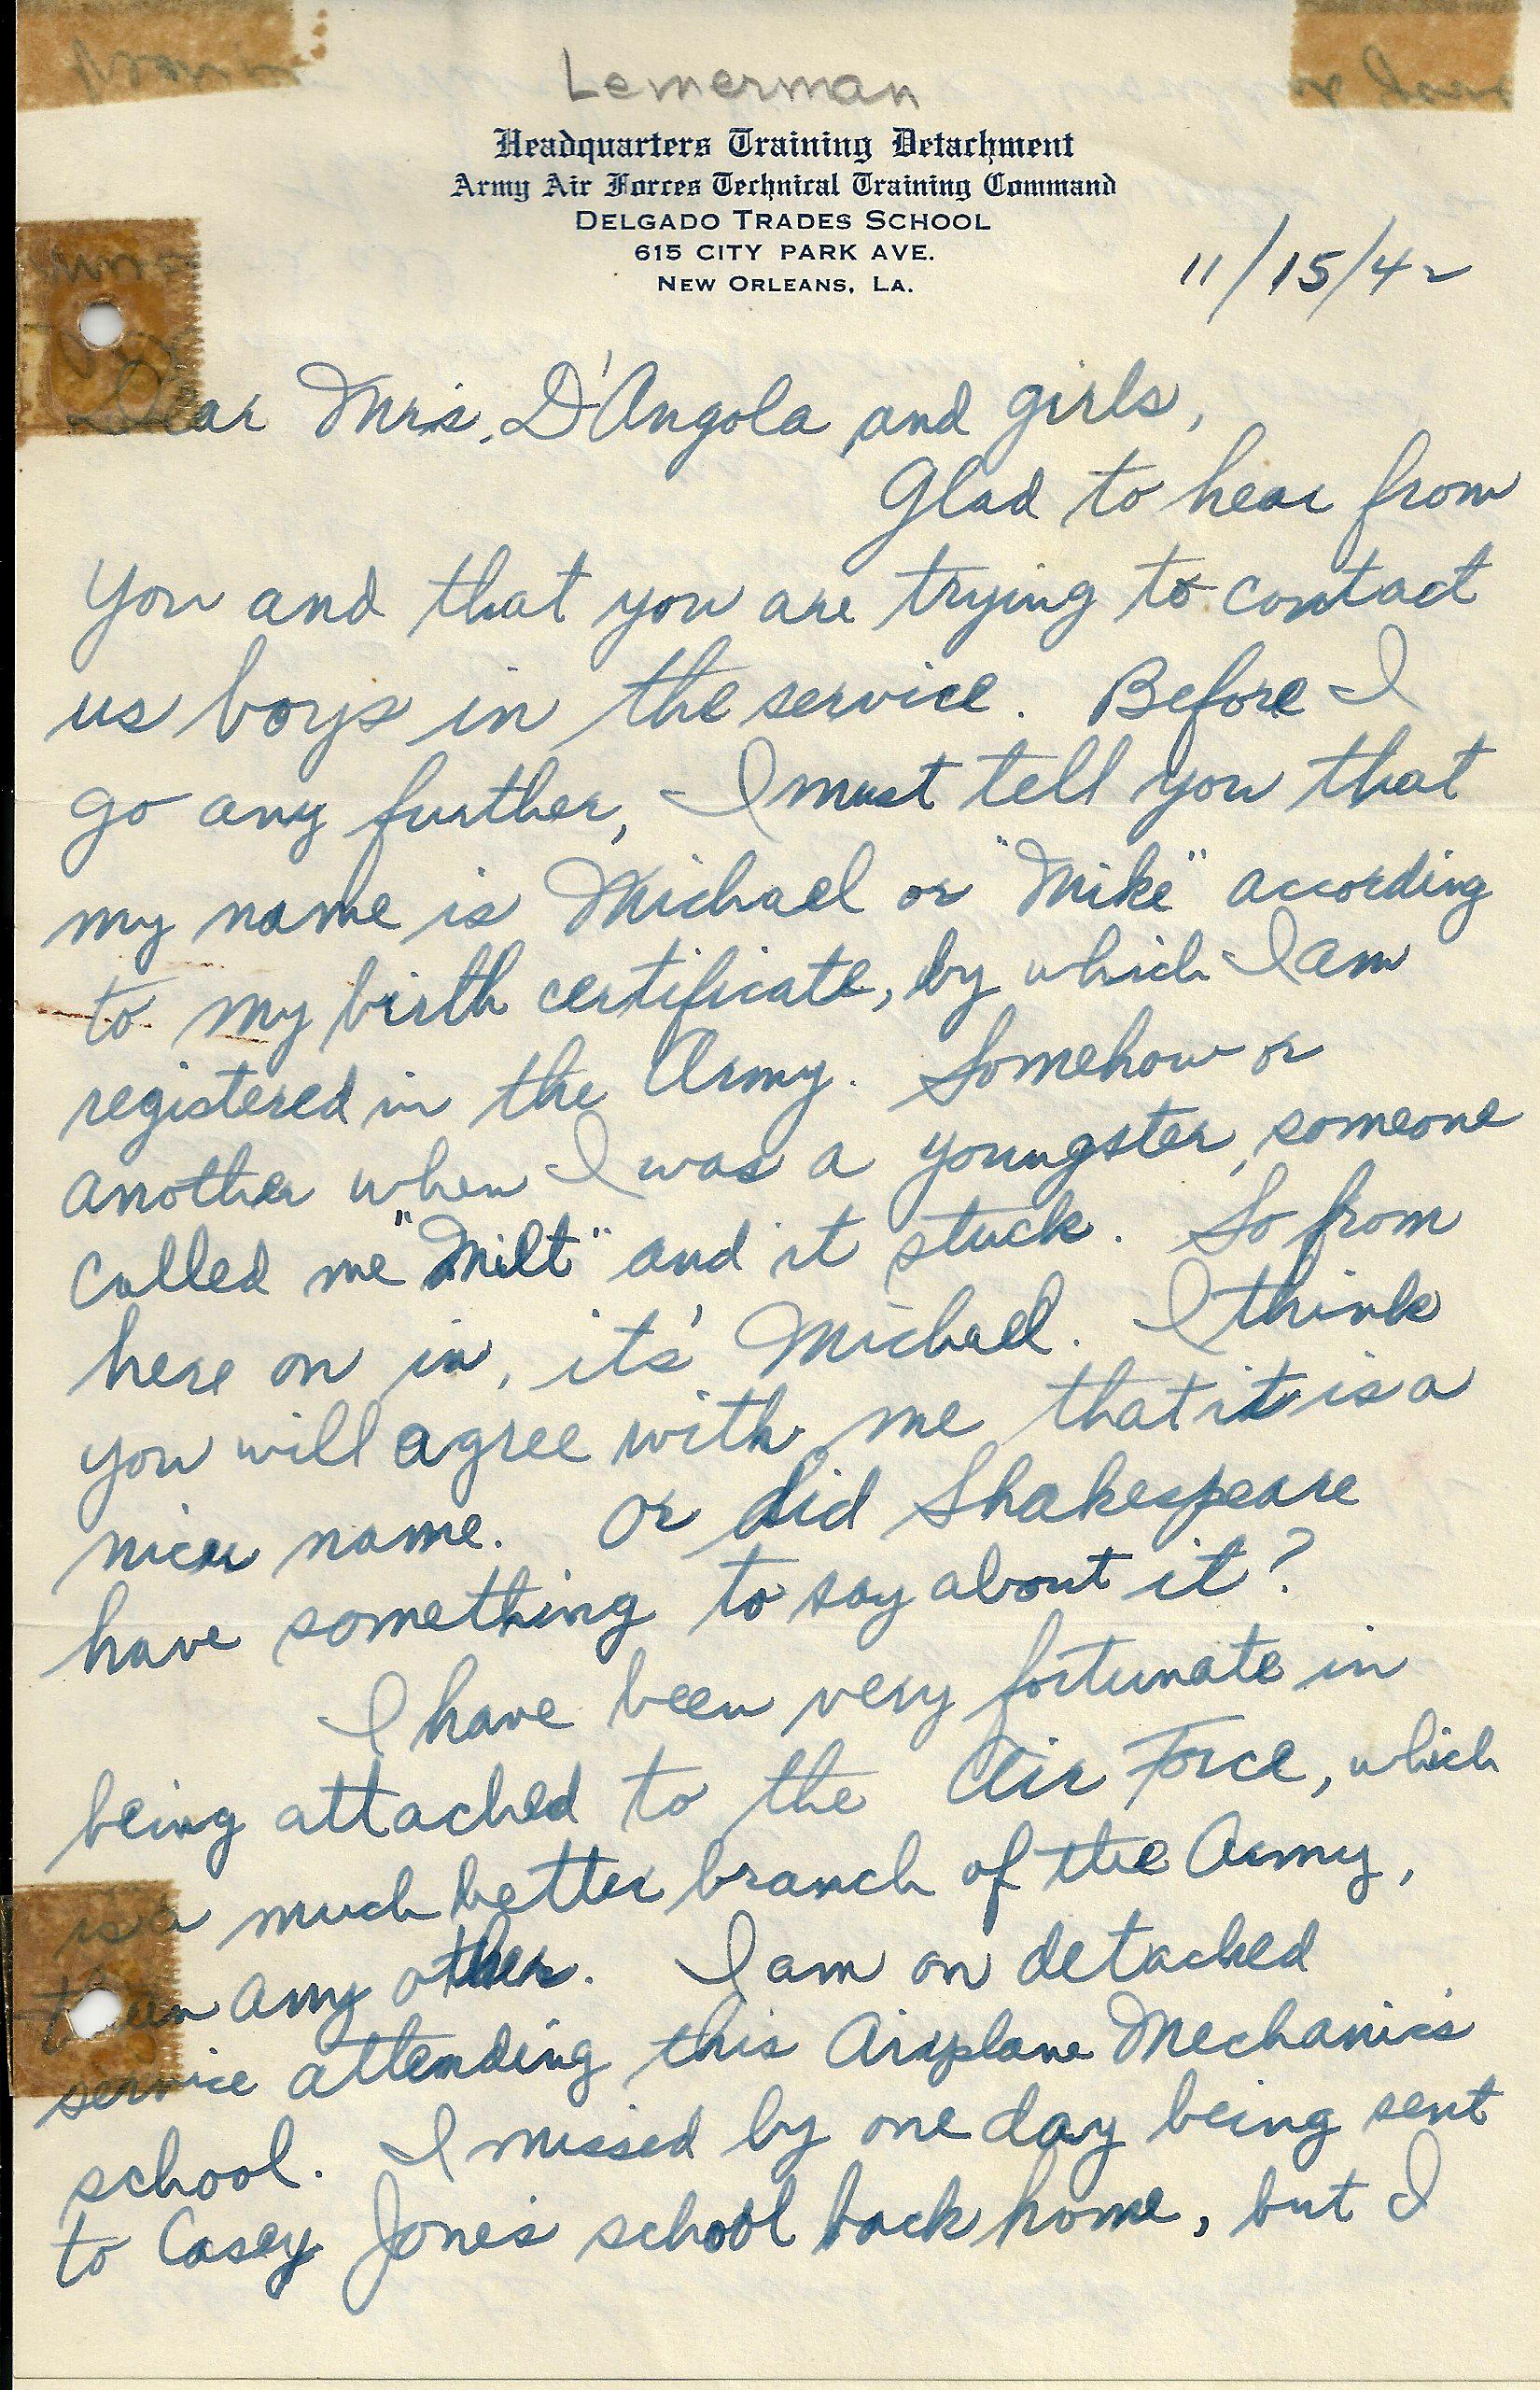 Lemerman
Headquarters Training Detachment
Army Air Forces Technical Training Command
DELGADO TRADES SCHOOL
615 CITY PARK AVE.
NEW ORLEANS, LA.
11/15/42
Dear Mrs. D'Angola and girls,
Glad to hear from
you and that you are trying to contact
us boys in the service. Before I
go any further, I must tell you that
my name is Michael or "Mike" according
to my birth certificate, by which I am
registered in the Army. Somehow or
another when I was a youngster, someone
called me "Milt" and it stuck. So from
here on in, it's Michael. I think
you will agree with me that it is a
nicer name. Or did Shakespeare
have something to say about it?
I have been very fortunate in
being attached to the Air Force, which
is a much better branch of the Army,
than any other. I am on detached
service attending this Airplane Mechanics
school. I missed by one day being sent
to Casey Jones school back home, but I